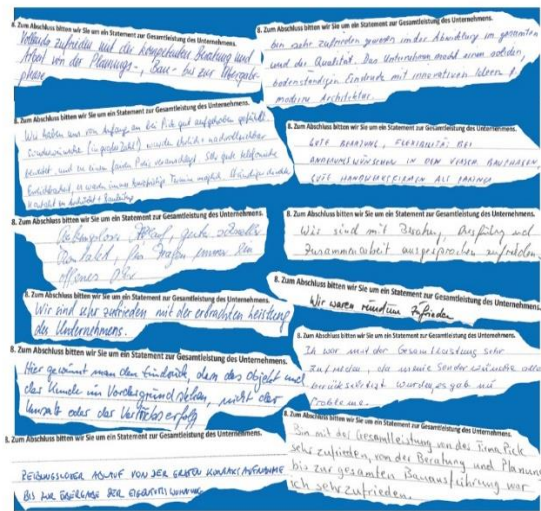 8. Zum Abschluss bitten wir Sie um ein Statement zur Gesamtleistung des Unternehmens.
Vollends zufrieden mit der kompetenten Beratung und
Arbeit von der Planungs-, Bau- bis zur Übergabe-
phase
8. Zum Abschluss bitten wir Sie um ein Statement zur Gesamtleistung des Unternehmens.
Wir haben uns von Anfang an bei Pick gut aufgehoben gefühlt.
Sonderwünsche (in großer Zahl) wurden
und zu einem fairen Preis Sehr gute telefonische
Erreichbarkeit, es waren immer kurzfristig Termine möglich.
8. Zum Abschluss bitten wir Sie um ein Statement zur Gesamtleistung des Unternehmens.
Reibungsloser Ablauf, gute schnelle
für Fragen immer ein
offenes Ohr
8. Zum Abschluss bitten wir Sie um ein Statement zur Gesamtleistung des Unternehmens.
Wir sind sehr zufrieden mit der erbrachten Leistung
des Unternehmens.
8. Zum Abschluss bitten wir Sie um ein Statement zur Gesamtleistung des Unternehmens.
Hier gewinnt man den Eindruck, dass das Objekt und
der Kunde im Vordergrund stehen, nicht der
Umsatz oder der Vertriebserfolg
8. Zum Abschluss bitten wir Sie um ein Statement zur Gesamtleistung des Unternehmens.
REIBUNGSLOSER ABLAUF VON DER ERSTEN KONTAKTAUFNAHME
BIS ZUR ÜBERGABE DER EIGENTUMSWOHNUNG.
8. Zum Abschluss bitten wir Sie um ein Statement zur Gesamtleistung des Unternehmens.
sehr zufrieden gewesen in der Abwicklung im gesamten
und der Qualität. Das Unternehmen macht einen soliden,
bodenständigen Eindruck mit innovativen Ideen f.
moderne Architektur.
8. Zum Abschluss bitten wir Sie um ein Statement zur Gesamtleistung des Unternehmens.
GUTE BERATUNG, FLEXIBILITÄT BEI
ÄNDERUNGSWÜNSCHEN IN DEN VERSCH. BAUPHASEN,
GUTE HANDWERKSFIRMEN ALS PARTNER
8. Zum Abschluss bitten wir Sie um ein Statement zur Gesamtleistung des Unternehmens.
Wir sind mit Beratung, Ausführung und
Zusammenarbeit ausgesprochen zufrieden.
8. Zum Abschluss bitten wir Sie um ein Statement zur Gesamtleistung des Unternehmens.
Wir waren rundum zufrieden
8. Zum Abschluss bitten wir Sie um ein Statement zur Gesamtleistung des Unternehmens.
Ich war mit der Gesamtleistung sehr
zufrieden, da meine Sonderwünsche alle
berücksichtigt wurden, es gab nie
Probleme.
8. Zum Abschluss bitten wir Sie um ein Statement zur Gesamtleistung des Unternehmens.
Bin mit der Gesamtleistung von der Firma Pick
sehr zufrieden, von der Beratung und Planung
bis zur gesamten Bauausführung war
ich sehr zufrieden.